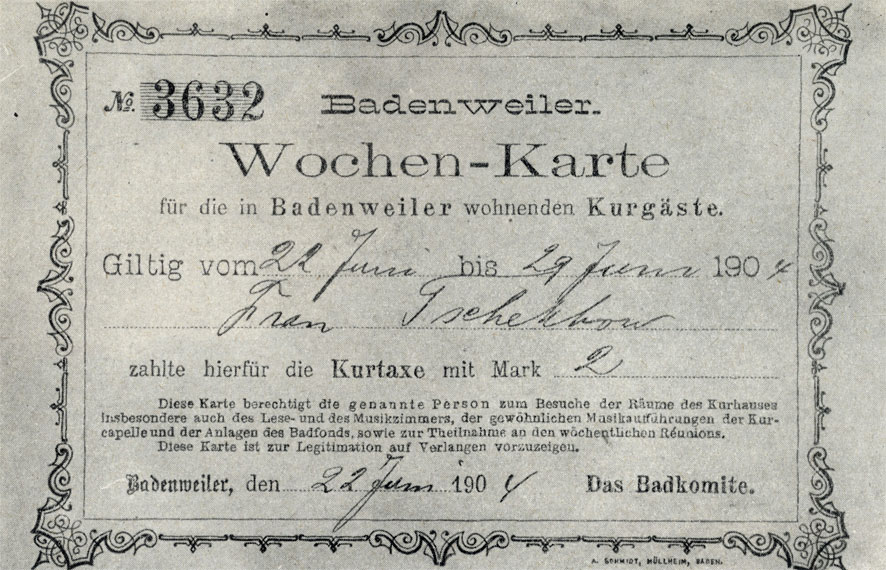 No. 3632 Badenweiler.
Wochen-Karte
für die in Badenweiler wohnenden Kurgäste.
Giltig vom 22 Juni bis 29 Juni 1904
Frau Tschekhow
zahlte hierfür die Kurtaxe mit Mark 2
Diese Karte berechtigt die genannte Person zum Besuche der Räume des Kurhauses
insbesondere auch des Lese- und des Musikzimmers, der gewöhnlichen Musikaufführungen der Kur-
capelle und der Anlagen des Badfonds, sowie zur Theilnahme an den wöchentlichen Réunions.
Diese Karte ist zur Legitimation auf Verlangen vorzuzeigen.
Badenweiler, den 22 Juni 1904 Das Badkomite.
A. SCHMIDT, MÜLLHEIM, BADEN.